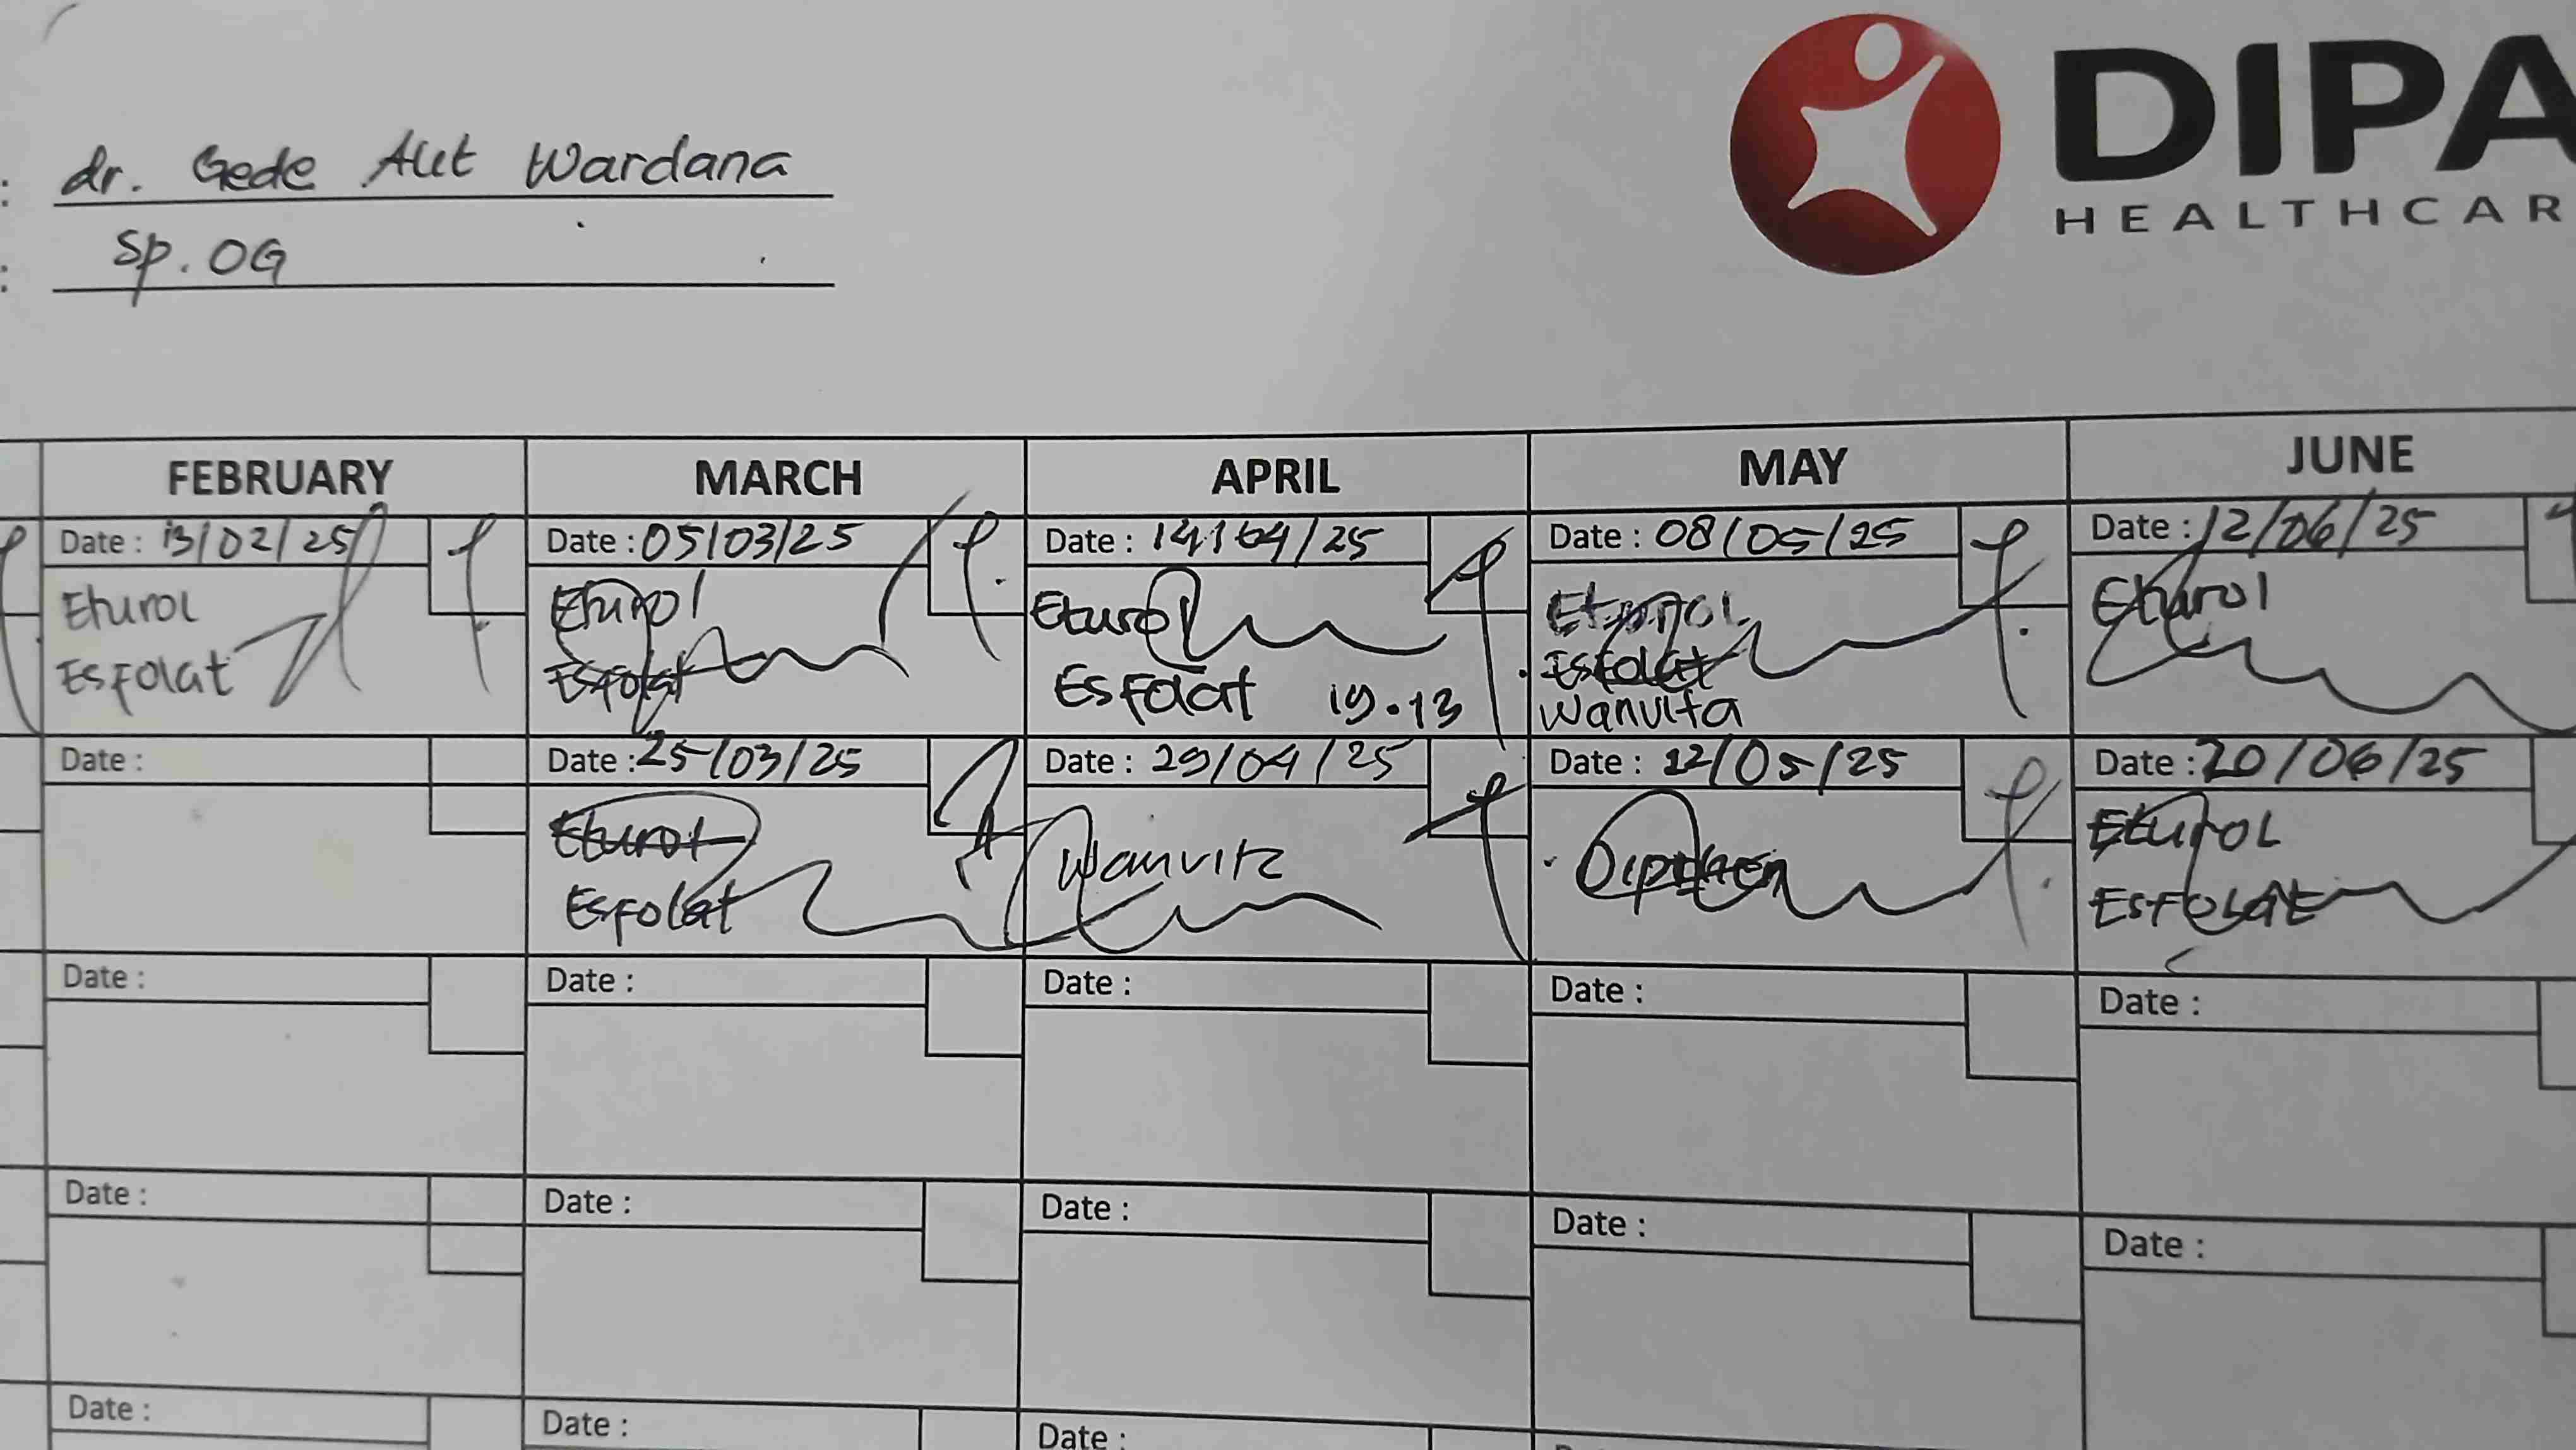 : dr. Gede Alit Wardana
: Sp.OG
DIPA
HEALTHCAR
FEBRUARY MARCH APRIL MAY JUNE
Date : 13/02/25 Date : 05/03/25 Date : 14/04/25 Date : 08/05/25 Date : 12/06/25
Eturol Eturol Eturol Eturol Eturol
Esfolat Esfolat Esfolat 19.13 Esfolat
Wanvita
Date : Date : 25/03/25 Date : 29/04/25 Date : 22/05/25 Date : 20/06/25
Eturol Wanvita Eturol
Esfolat Esfolat
Date : Date : Date : Date : Date :
Date : Date : Date : Date : Date :
Date : Date : Date :